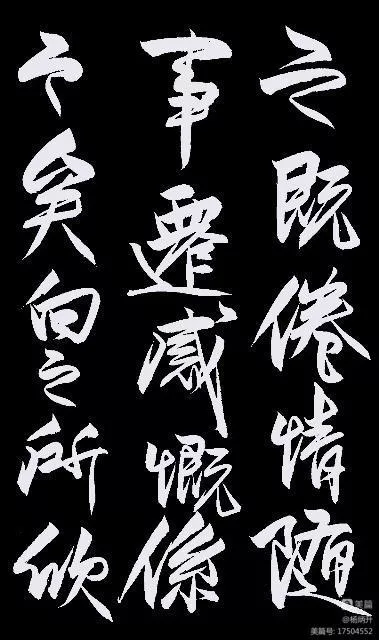 之既倦情随
事遷感慨係
之矣向之所欣
美篇
@杨炳升
美篇号: 17504552